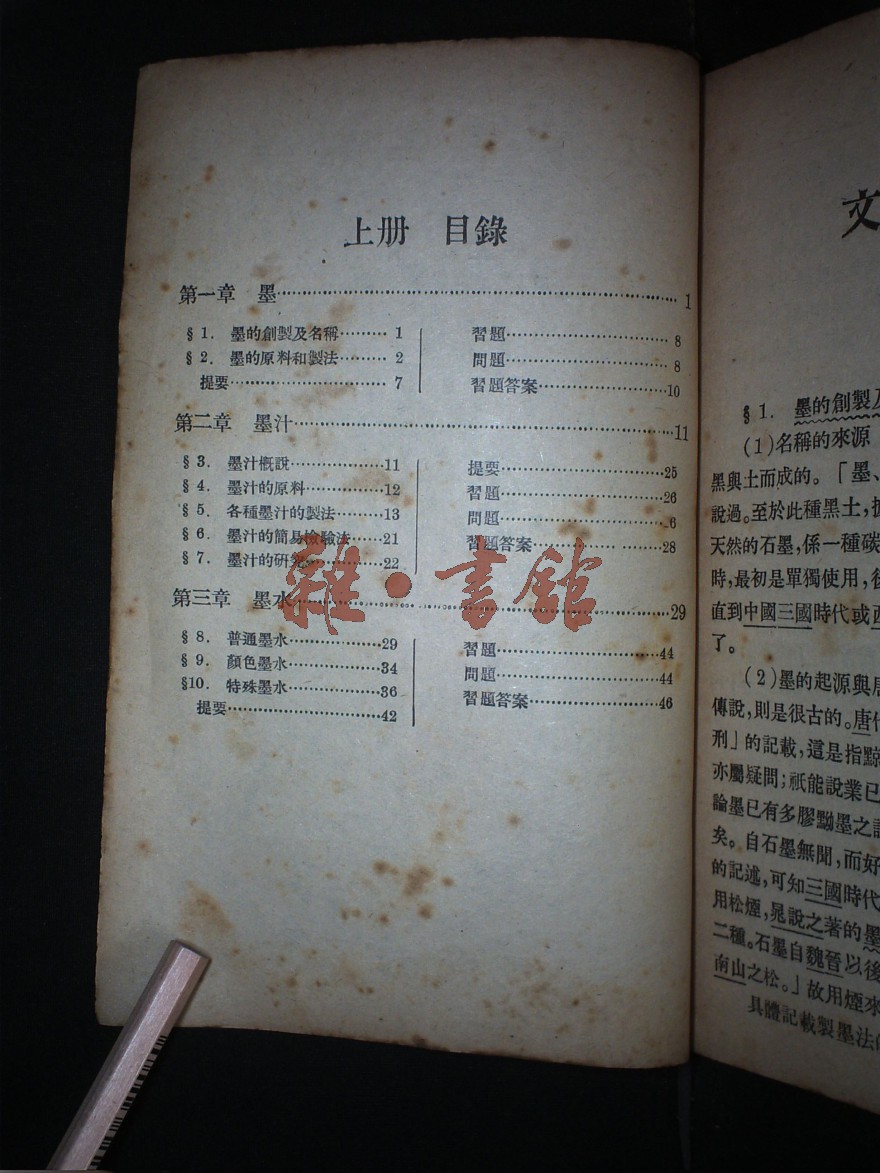 上册 目錄
第一章 墨 1
§ 1. 墨的創製及名稱 1
§ 2. 墨的原料和製法 2
提要 7
習題 8
問題 8
習題答案 10
第二章 墨汁 11
§ 3. 墨汁概說 11
§ 4. 墨汁的原料 12
§ 5. 各種墨汁的製法 13
§ 6. 墨汁的簡易檢驗法 21
§ 7. 墨汁的研究 22
提要 25
習題 26
問題 6
習題答案 28
第三章 墨水 29
§ 8. 普通墨水 29
§ 9. 顏色墨水 34
§10. 特殊墨水 36
提要 42
習題 44
問題 44
習題答案 46
雜·書館
文
§ 1. 墨的創製及
(1)名稱的來源
黑與土而成的。「墨、
說過。至於此種黑土,據
天然的石墨,係一種碳
時,最初是單獨使用,後
直到中國三國時代或西
了。
(2)墨的起源與
傳說,則是很古的。唐代
刑」的記載,這是指黥
亦屬疑問;祇能說業已
論墨已有多膠黝墨之
矣。自石墨無聞,而好
的記述,可知三國時代
用松煙,晁說之著的墨
二種。石墨自魏晉以後
南山之松。」故用煙來
具體記載製墨法